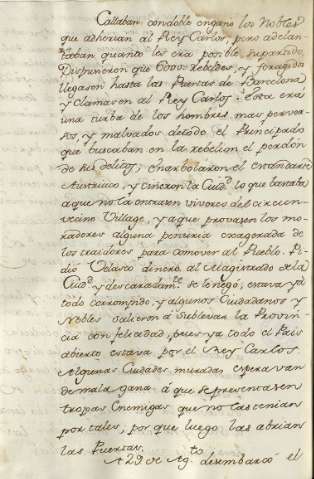 Callaban con doble engaño los Nobles
que adherian al Rey Carlos, pero adelan-
taban quanto les era posible, repartido,
Dispusieron que 6000 rebeldes, y foragidos
llegasen hasta las Puertas de Barcelona
y clamasen al Rey Carlos. Esta era
una turba de los hombres, mas perver-
sos, y malvados de todo el Principado
que buscaban en la rebelion el perdon
de sus delitos; enarbolaron el estandarte
Austriaco, y ciñeron la Ciud.d lo que bastaba
a que no la entrasen viveres del circun-
vecino Village, y a que provasen los mo-
radores alguna penuria exagerada de
los traidores para comover al Pueblo. Pi-
dió Velasco dinero al Magistrado de la
Ciud.d y descaradam.te se lo negó; estava yá
todo corrompido, y algunos Ciudadanos y
Nobles salieron á sublevar la Provin-
cia con felicidad, pues ya todo el Pais
abierto estava por el Rey Carlos.
Algunas Ciudades muradas esperavan
de mala gana á que se presentasen
tropas Enemigas que no las tenian
por tales, por que luego las abrian
las Puertas.
A 29 de Ag.to desembarcó el